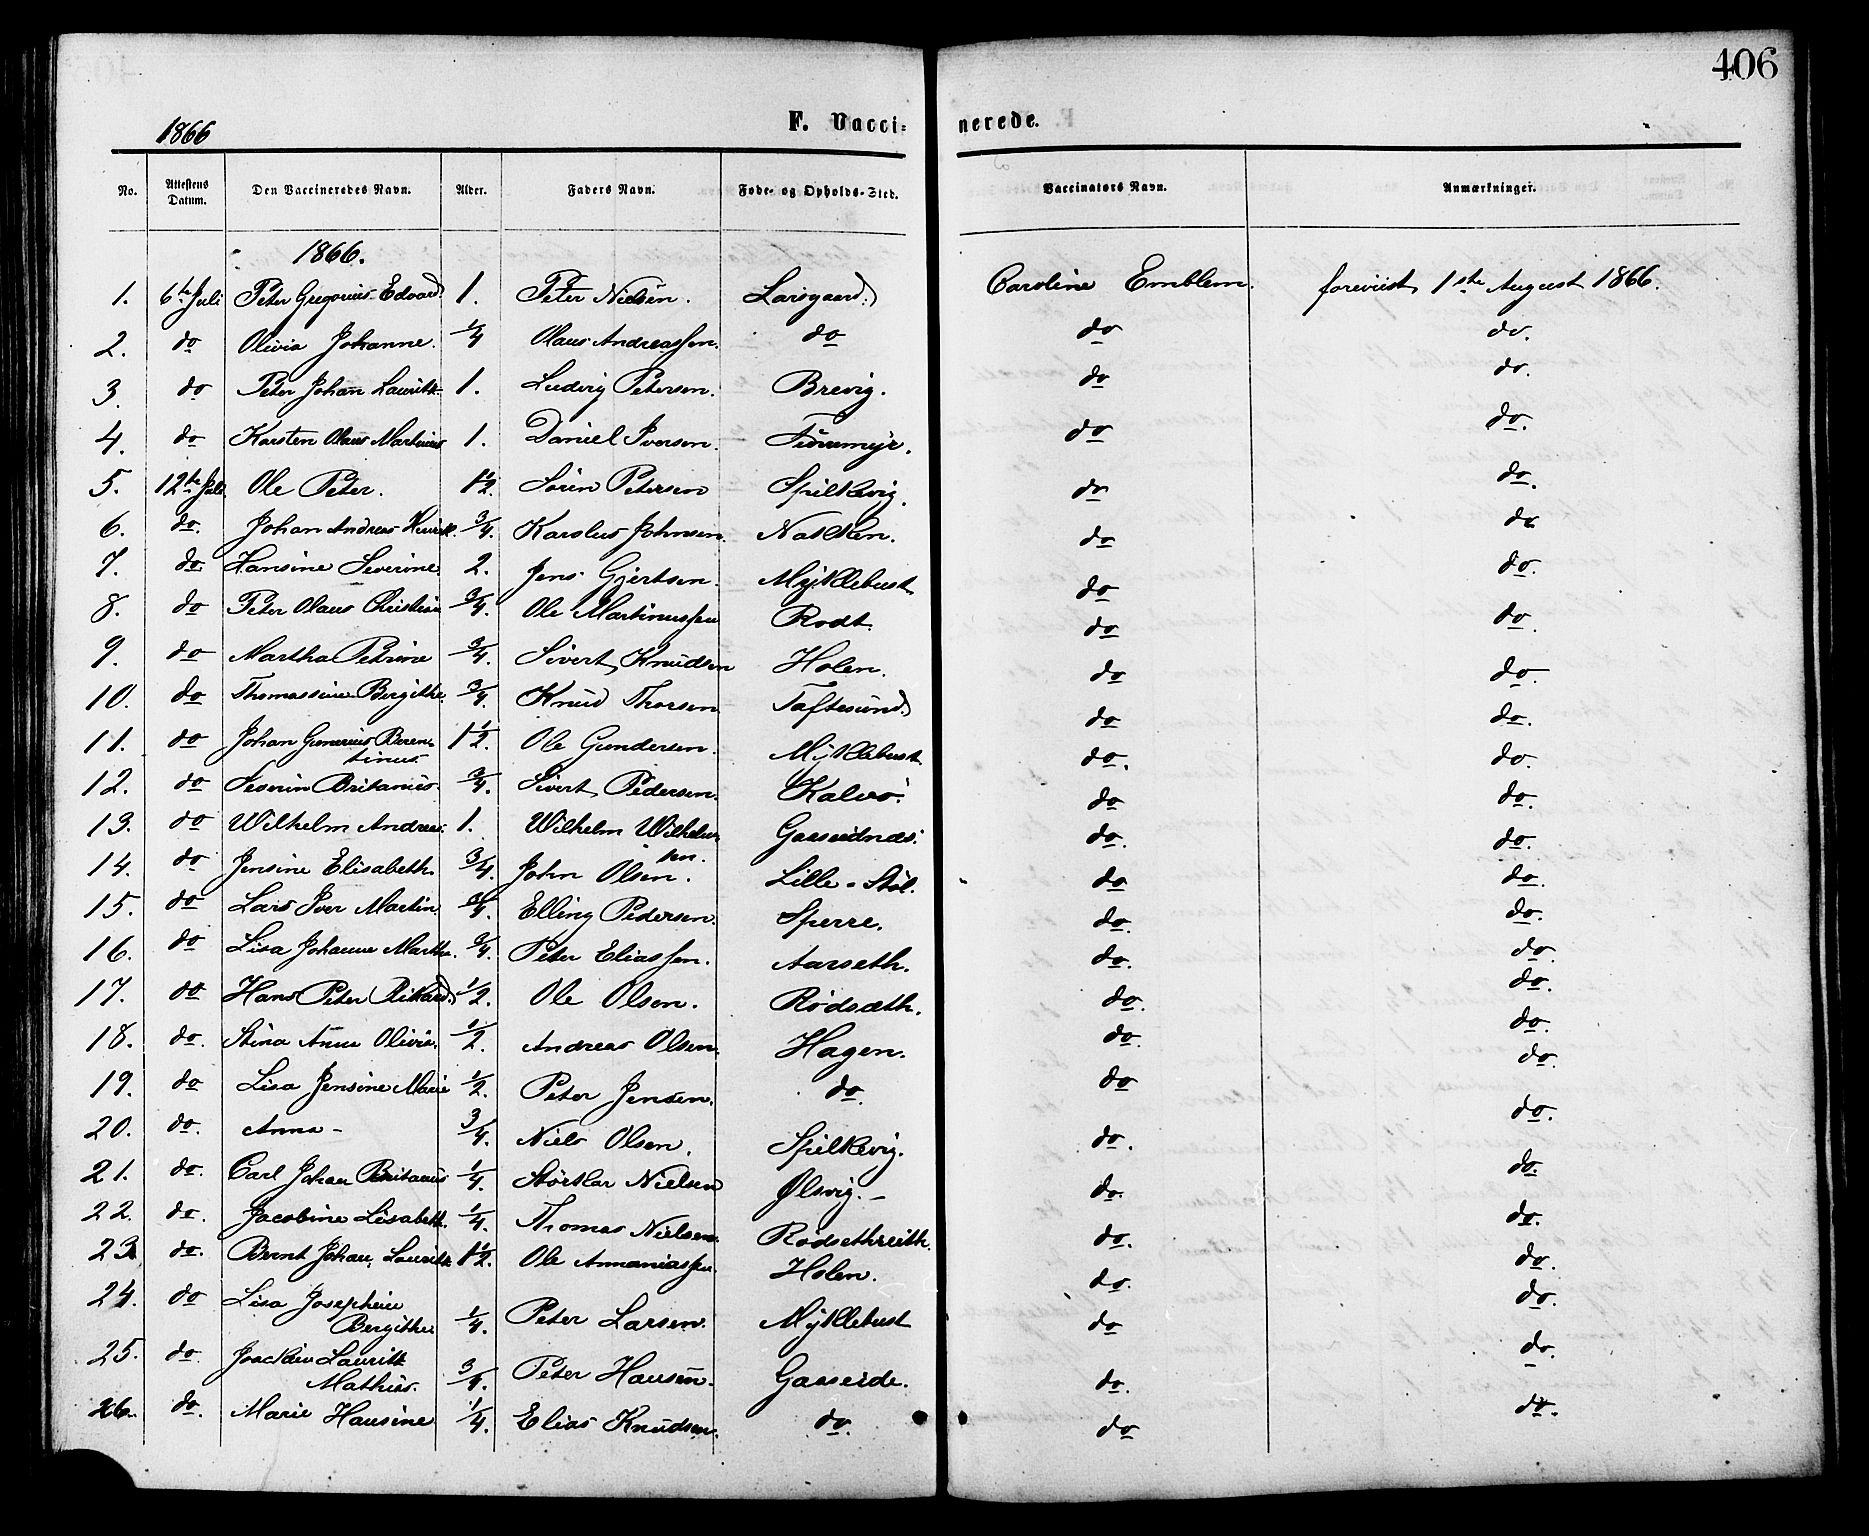 406
1866
F. Vaccinerede.
No. Attestens Datum. Den Vaccineredes Navn. Alder. Faders Navn. Føde- og Opholds-Sted. Vaccinators Navn. Anmærkninger.
1866.
1. 6te Juli Peter Gregorius Edvard 1. Peter Nielsen. Larsgaard. Caroline Emblem. foreviist 1ste August 1866.
2. do Olivia Johanne. 1/4 Olaus Andreassen. do do do.
3. do Peter Johan Lauritz 1. Ludvig Petersen. Brevig. do do.
4. do Karsten Olaus Martinius 1. Daniel Iversen. do do.
5. 12te Juli Ole Peter. 1 1/2. Sören Petersen Spilkevig. do do.
6. do. Johan Andreas Henrik. 3/4. Karolus Johnsen. Nakken. do do
7. do Hansine Severine. 2. Jens Gjertsen. Myklebust do do.
8. do Peter Olaus Christian 3/4. Ole Martinussen Rodt. do do.
9. do Martha Petrine 3/4. Sivert Knudsen Holen. do do.
10. do Thomassine Bergithe. 3/4. Knud Thorsen Taftesund do do.
11. do Johan Gunerius Beren-
tinus. 1 1/2. Ole Gundersen. Myklebust do. do.
12. do Severin Britanius. 3/4. Sivert Pedersen. Kalvø. do do.
13. do Wilhelm Andreas. 1. Wilhelm Wilhelm-
sen. Gaaseidnæs. do. do.
14. do Jensine Elisabeth 3/4. John Olsen. Lille-Støl. do do.
15. do Lars Iver Martin. 3/4. Elling Pedersen. Sperre. do. do.
16. do Lisa Johanne Marthe. 3/4. Peter Eliassen. Aarseth. do. do.
17. do Hans Peter Rikard. 1/2. Ole Olsen. Rødsæth. do. do.
18. do. Stina Anne Olivia. 1/2. Andreas Olsen. Hagen. do. do.
19. do Lisa Jensine Marie 1/2. Peter Jensen. do. do do.
20. do. Anna - 3/4. Niels Olsen. Spilkevig. do. do.
21. do. Carl Johan Britanius 1/4. Størkar Nielsen Ølsvig. - do. do.
22. do. Jacobine Lisabeth. 1/4. Thomas Nielsen. Rodsethreith. do. do.
23. do. Bernt Johan Lauritz 1 1/2. Ole Annaniassen. Holen. do. do.
24. do Lisa Josephine
Bergithe 1/4. Peter Larsen. Myklebust do do.
25. do. Joachim Lauritz
Mathias. 3/4. Peter Hansen. Gaaseide. do. do.
26. do. Marie Hansine 1/4. Elias Knudsen. do. do do.